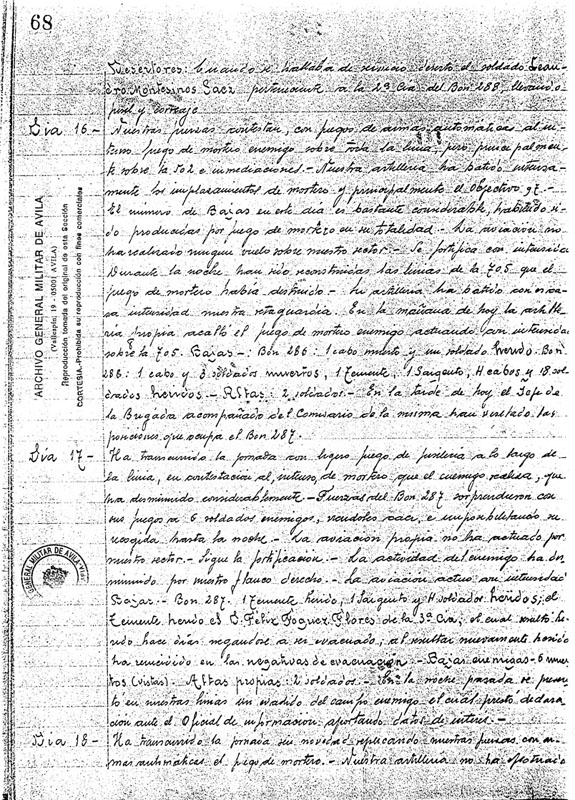 68
Desertores: Cuando se hallaba de servicio desertó el soldado Lean-
dro Montesinos Saez perteneciente a la 2ª Cia del Bon 288, llevando
fusil y correaje
Dia 16 - Nuestras fuerzas contestan, con fuegos de armas automáticas al in-
tenso fuego de mortero enemigo sobre toda la linea, pero principalmen-
te sobre la 502 e inmediaciones. - Nuestra artilleria ha batido intensa-
mente los emplazamientos de mortero y principalmente el Objetivo 97. -
El numero de Bajas en este dia es bastante considerable, habiendo si-
do producidas por fuego de mortero en su totalidad. - La aviación no
ha realizado ningun vuelo sobre nuestro sector. - Se fortifica con intensidad
Durante la noche han sido reconstruidas las lineas de la 705 que el
fuego de mortero habia destruido - Su artilleria ha batido con
intensidad nuestra retaguardia. En la mañana de hoy la artille-
ria propia acalló el fuego de mortero enemigo actuando con intensidad
sobre la 705. Bajas -: Bon 286: 1 cabo muerto y un soldado herido. Bon
288: 1 cabo y 3 soldados muertos, 1 Teniente, 1 Sargento, 4 cabos y 18 sol-
dados heridos - Altas: 2 soldados. - En la tarde de hoy el Jefe de
la Brigada acompañado del Comisario de la misma han visitado las
posiciones que ocupa el Bon 287.
Dia 17 - Ha transcurrido la jornada con ligero fuego de fusileria a lo largo de
la linea, en contestacion al intenso, de mortero, que el enemigo realiza, que
ha disminuido considerablemente - Fuerzas del Bon 287 sorprendieron con
sus fuegos a 6 soldados enemigos, viendoles caer, e imposibilitando su
recogida hasta la noche. - La aviacion propia no ha actuado por
nuestro sector. - Sigue la fortificacion. - La actividad del enemigo ha dis-
minuido por nuestro flanco derecho. - La aviacion actuo con intensidad
Bajas - Bon 287. 1 Teniente herido, 1 Sargento y 4 soldados heridos; el
Teniente herido es D. Felix Foguez Flores de la 3ª Cia; el cual resultó he-
rido hace dias negandose a ser evacuado, al resultar nuevamente herido
ha reincidido en las negativas de evacuación - Bajas enemigas - 6 muer-
tos (vistas). Altas propias: 2 soldados. - En la noche pasada se presen-
tó en nuestras lineas un evadido del campo enemigo el cual prestó declara-
cion ante el Oficial de informacion aportando datos de interes. -
Dia 18 - Ha transcurrido la jornada sin novedad replicando nuestras fuerzas con ar-
mas automáticas el fuego de mortero. - Nuestra artilleria no ha efectuado
ARCHIVO GENERAL MILITAR DE AVILA
(Vallespín, 19 - 05001 AVILA)
Reproducción tomada del original de esta Sección
CORTESIA - Prohibida su reproducción con fines comerciales
GENERAL MILITAR DE AVILA